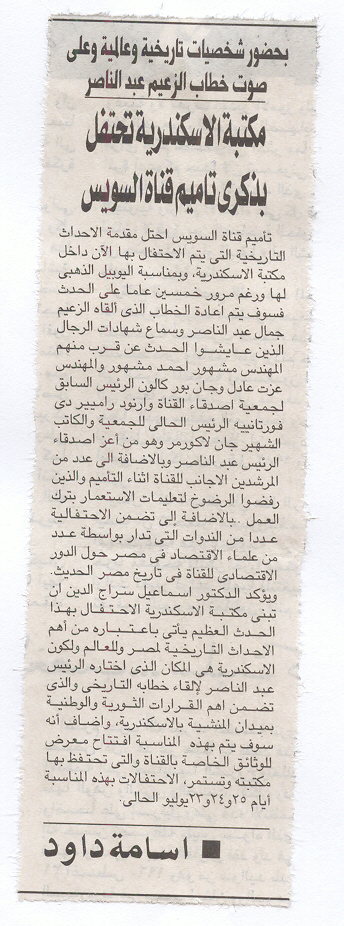 بحضور شخصيات تاريخية وعالمية وعلى
صوت خطاب الزعيم عبد الناصر
مكتبة الاسكندرية تحتفل
بذكرى تاميم قناة السويس
تأميم قناة السويس احتل مقدمة الاحداث
التاريخية التى يتم الاحتفال بها الآن داخل
مكتبة الاسكندرية، وبمناسبة اليوبيل الذهبى
لها ورغم مرور خمسين عاما على الحدث
فسوف يتم اعادة الخطاب الذى ألقاه الزعيم
جمال عبد الناصر وسماع شهادات الرجال
الذين عايشوا الحدث عن قرب منهم
المهندس مشهور احمد مشهور والمهندس
عزت عادل وجان بور كالون الرئيس السابق
لجمعية اصدقاء القناة وارنود راميير دى
فورتانييه الرئيس الحالى للجمعية والكاتب
الشهير جان لاكورمر وهو من أعز اصدقاء
الرئيس عبد الناصر وبالاضافة الى عدد من
المرشدين الاجانب للقناة اثناء التاميم والذين
رفضوا الرضوخ لتعليمات الاستعمار بترك
العمل ..بالاضافة إلى تضمن الاحتفالية
عددا من الندوات التى تدار بواسطة عدد
من علماء الاقتصاد فى مصر حول الدور
الاقتصادى للقناة فى تاريخ مصر الحديث.
ويؤكد الدكتور اسماعيل سراج الدين ان
تبنى مكتبة الاسكندرية الاحتفال بهذا
الحدث العظيم يأتى باعتباره من أهم
الاحداث التاريخية لمصر وللعالم ولكون
الاسكندرية هى المكان الذى اختاره الرئيس
عبد الناصر لإلقاء خطابه التاريخى والذى
تضمن اهم القرارات الثورية والوطنية
بميدان المنشية بالاسكندرية، واضاف أنه
سوف يتم بهذه المناسبة افتتاح معرض
للوثائق الخاصة بالقناة والتى تحتفظ بها
مكتبته وتستمر، الاحتفالات بهذه المناسبة
أيام ٢٥و٢٤و٢٣يوليو الحالى.
■ اسامة داود